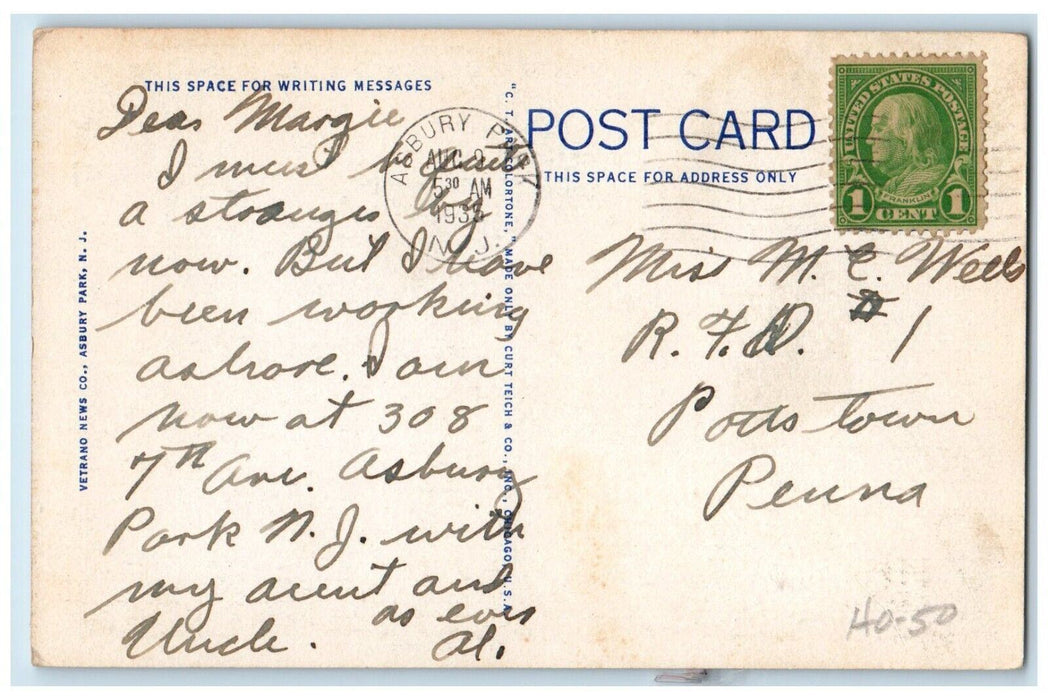 THIS SPACE FOR WRITING MESSAGES
Dear Margie
I must be quite
a stranger by
now. But I have
been working
ashore. I am
now at 308
7th Ave. Asbury
Park N. J. with
my aunt and
Uncle. as ever
Al.
VETRANO NEWS CO., ASBURY PARK, N. J.
"C. T. ART COLORTONE," MADE ONLY BY CURT TEICH & CO., INC., CHICAGO, U.S.A.
ASBURY PARK
AUG 9
5 30 AM
N. J.
POST CARD
THIS SPACE FOR ADDRESS ONLY
UNITED STATES POSTAGE
FRANKLIN
1 CENT 1
Miss M. E. Wells
R. F. D. # 1
Pottstown
Penna
40-50